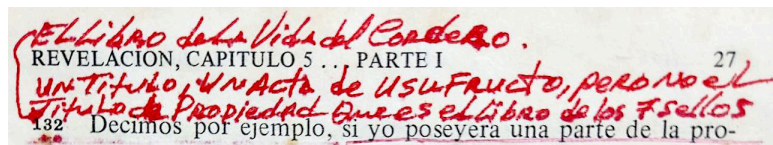 El Libro de la Vida del Cordero.
REVELACION, CAPITULO 5 ... PARTE I 27
UN Titulo, UN Acta de USUFRUCTO, pero No el
Titulo de Propiedad Que es el Libro de los 7 sellos
132 Decimos por ejemplo, si yo poseyera una parte de la pro-